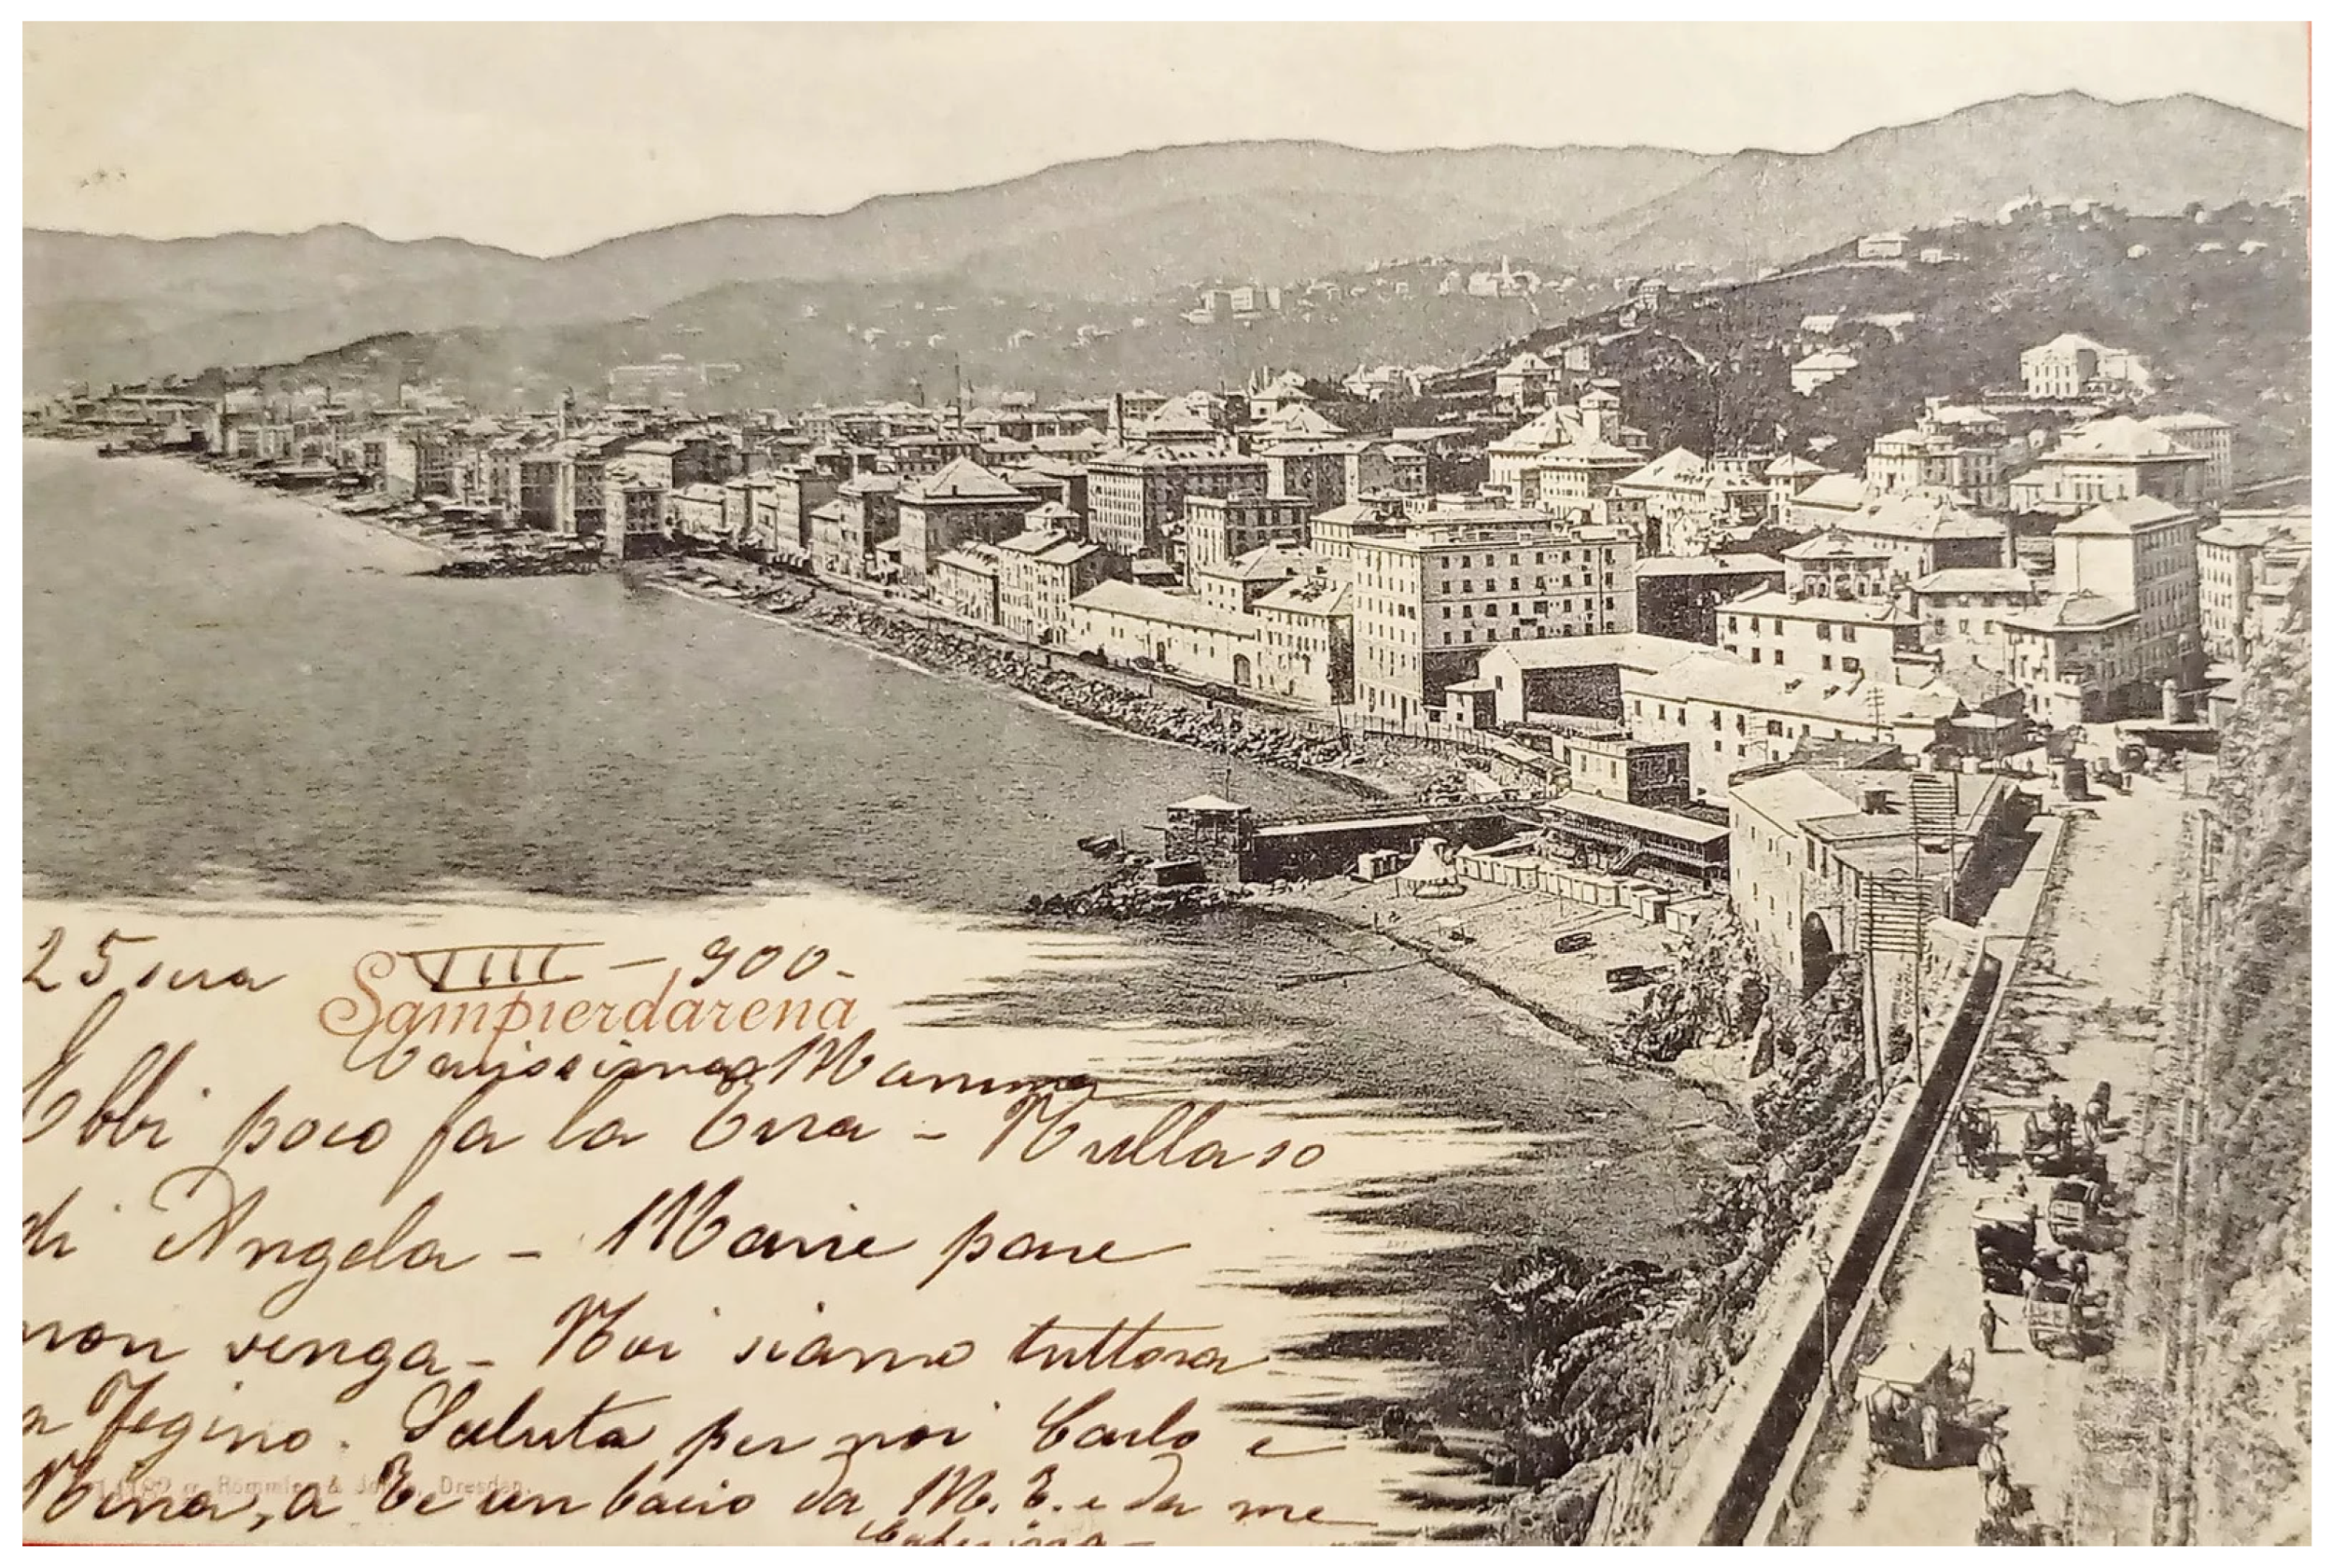 25 sera VIII - 900.
Sampierdarena
Carissima Mamma
Ebbi poco fa la Tua - Nulla so
di Angela - Marie pare
non venga - Noi siamo tuttora
a Fegino. Saluta per noi Carlo e
Nina, a Te un bacio da M. E. e da me
Römmler & Jonas, Dresden.